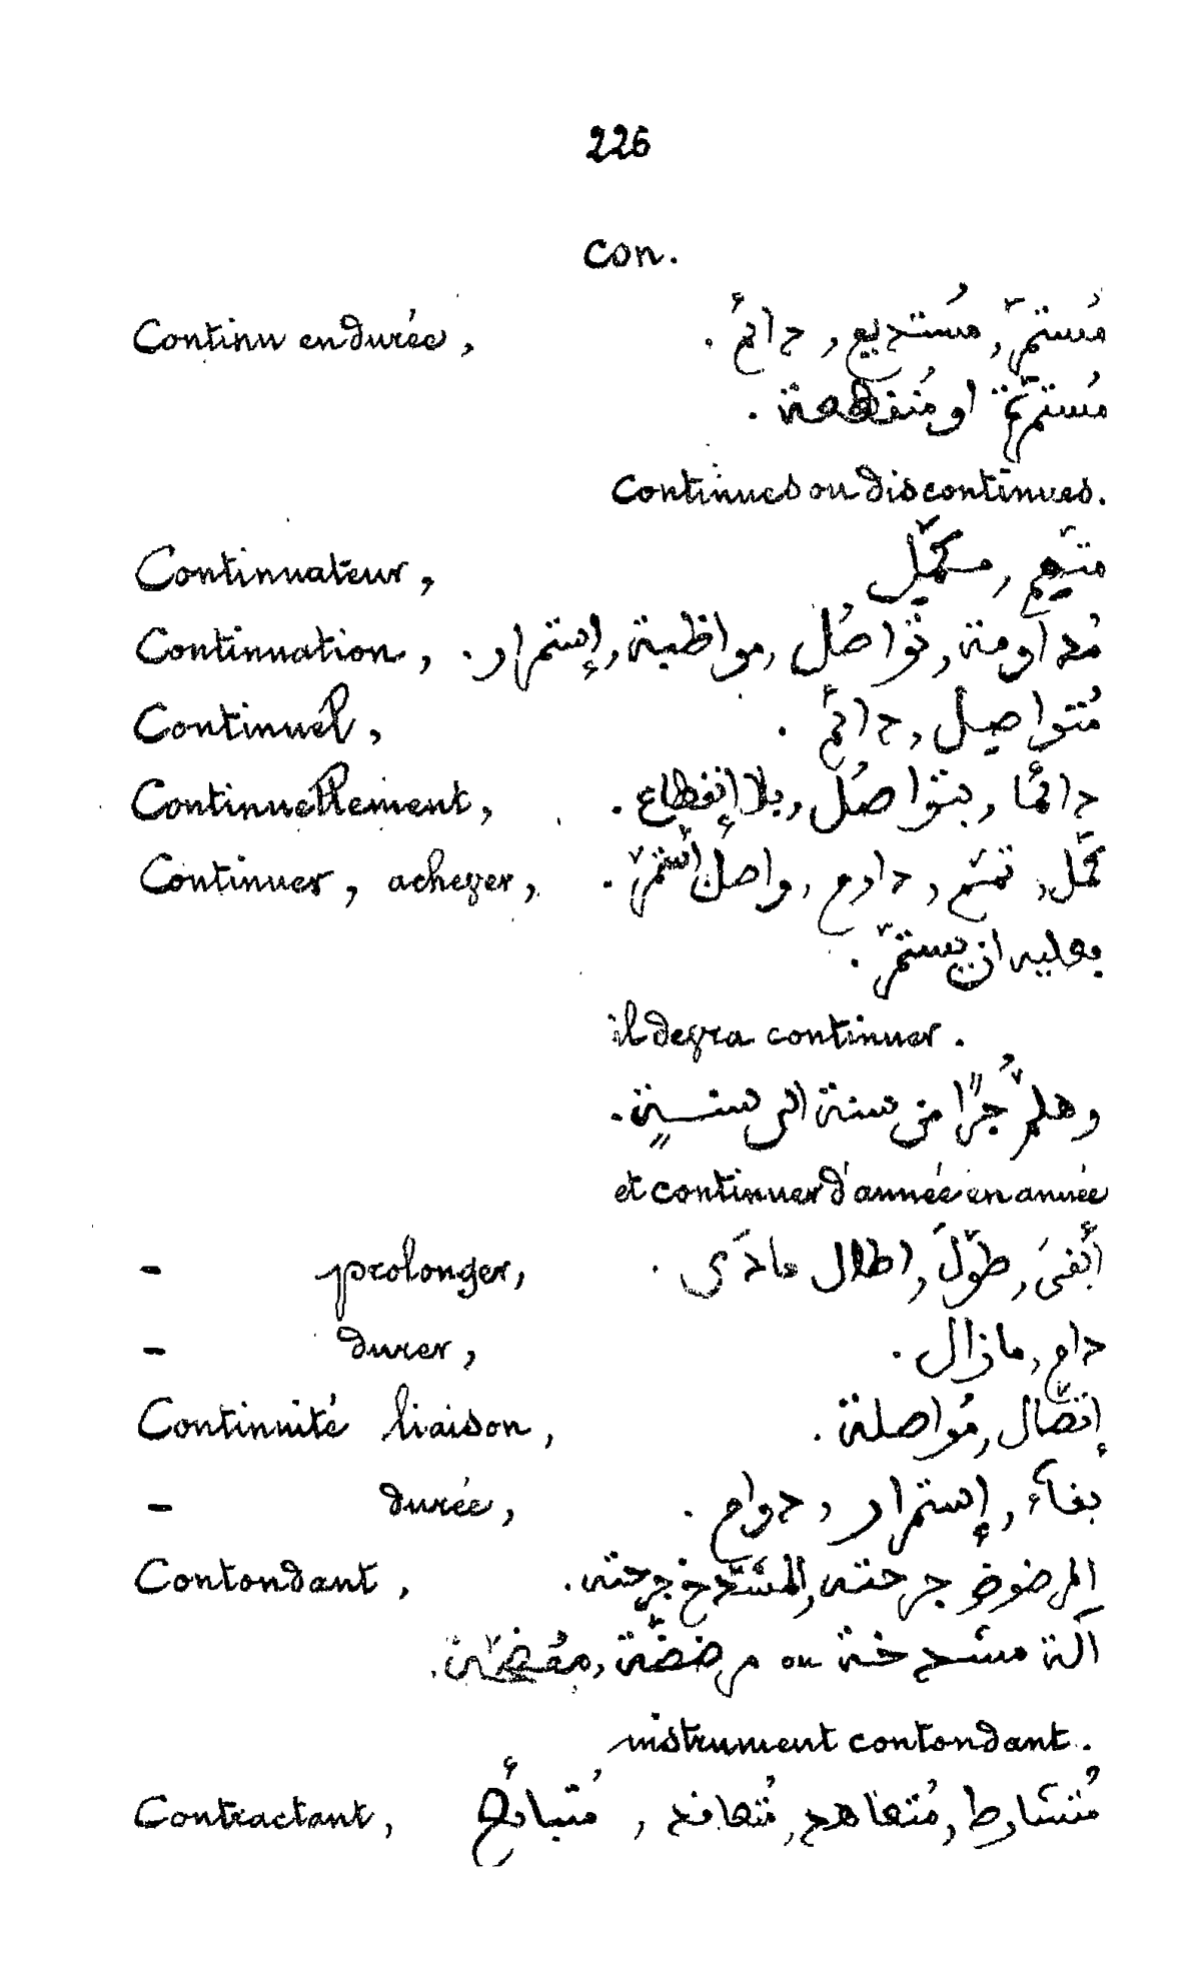 226
Con.
Continu en durée, مُستمرّ, مُستديم, دائم.
مُستمرّة او مُنقطعة.
Continues ou discontinues.
Continuateur, متمّم, مكمّل
Continuation, مُداومة, تَواصُل, مواظبة, إستمرار.
Continuel, مُتواصِل, دائم.
Continuellement, دائمًا, بتواصُل, بلا إنقطاع.
Continuer, achever, كمّل, تمّم, داوم, واصل, أستمرّ.
بعليه ان يستمرّ.
il devra continuer.
وهلمُّ جرًّا من سنة الى سنة.
et continuer d'année en année
- prolonger, أبقىَ, طوّلَ, اطال مادَى.
- durer, دام, مازال.
Continuité liaison, إتصّال, مُواصلة.
- durée, بقآء, إستمرار, دوام.
Contondant, المرضوض جرحته, المشدّخ جرحته.
آلة مشدخة ou مرضضّة,
instrument contondant.
Contractant, مُتشارط, مُتعاهد, مُتعاقد, مُتبائع